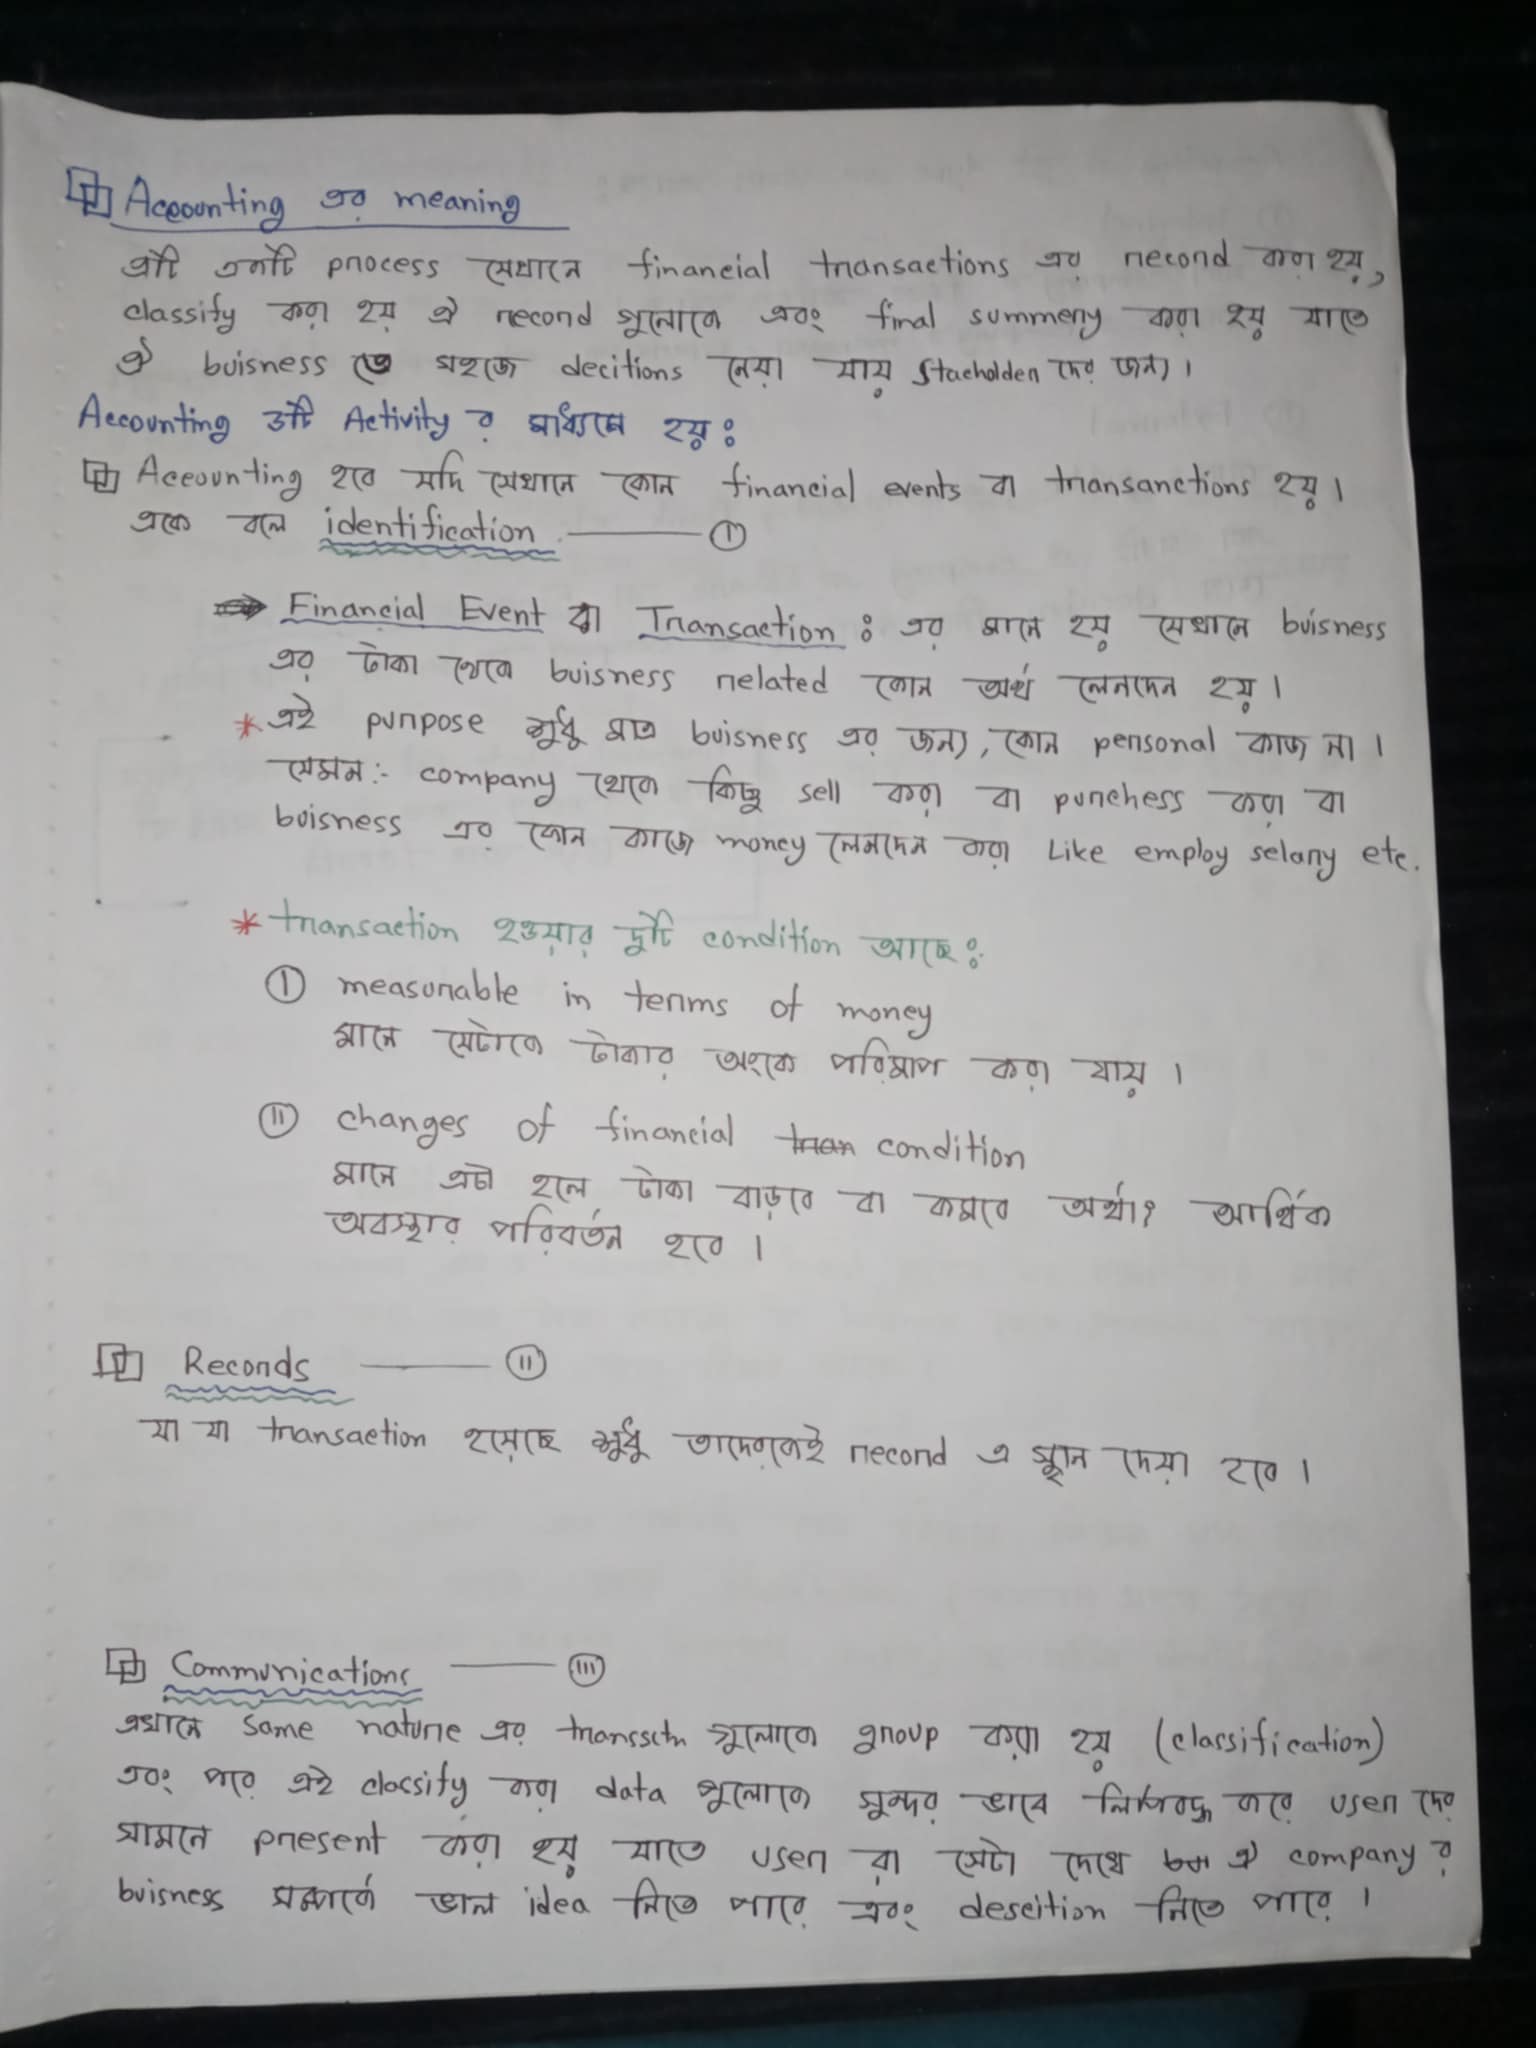 Accounting এর meaning
এটি একটি process যেখানে financial transactions এর record করা হয়,
classify করা হয় ঐ record গুলোকে এবং final summery করা হয় যাতে
ঐ buisness তে সহজে decitions নেয়া যায় Stacholder দের জন্য।
Accounting ৩টি Activity র মাধ্যমে হয়ঃ
Accounting হবে যদি সেখানে কোন financial events বা transanctions হয়।
একে বলে identification ——— (I)
Financial Event বা Transaction : এর মানে হয় সেখানে buisness
এর টাকা থেকে buisness related কোন অর্থ লেনদেন হয়।
* এই purpose শুধু মাত্র buisness এর জন্য, কোন personal কাজ না।
যেমন:- company থেকে কিছু sell করা বা purchess করা বা
buisness এর কোন কাজে money লেনদেন করা Like employ selary etc.
* transaction হওয়ার দুটি condition আছেঃ
(I) measurable in terms of money
মানে সেটাকে টাকার অংকে পরিমাপ করা যায়।
(II) changes of financial condition
মানে এটা হলে টাকা বাড়বে বা কমবে অর্থাৎ আর্থিক
অবস্থার পরিবর্তন হবে।
Records ——— (II)
যা যা transaction হয়েছে শুধু তাদেরকেই record এ স্থান দেয়া হবে।
Communications ——— (III)
এখানে same nature এর transsctn গুলোকে group করা হয় (classification)
এবং পরে এই classify করা data গুলোকে সুন্দর ভাবে লিপিবদ্ধ করে user দের
সামনে present করা হয় যাতে user রা সেটা দেখে ঐ company র
buisness সম্পর্কে ভাল idea নিতে পারে এবং descition নিতে পারে।